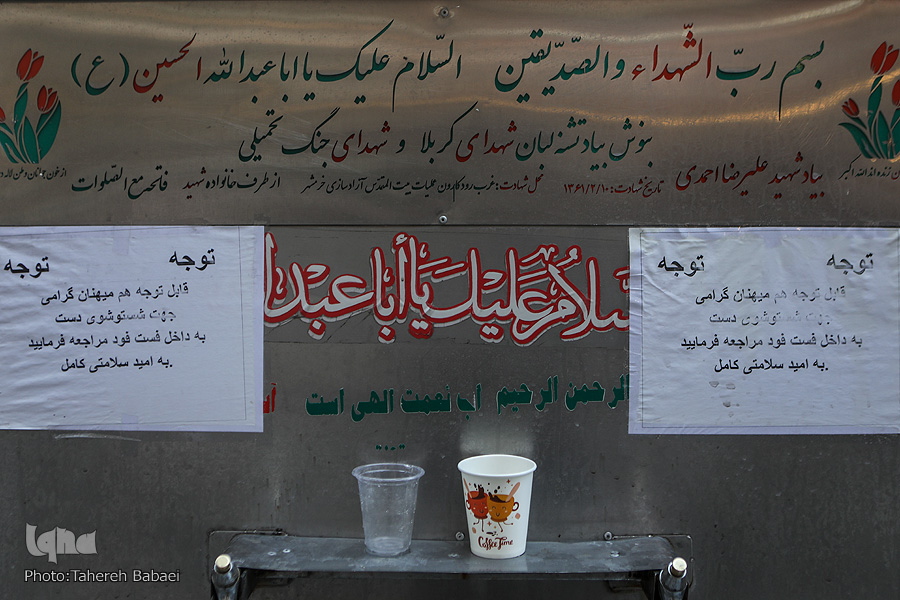 بسم ربّ الشّهداء والصدّیقین السّلام علیک یا اباعبدالله الحسین (ع)
بنوش بیاد تشنه لبان شهدای کربلا و شهدای جنگ تحمیلی
بیاد شهید علیرضا احمدی تاریخ شهادت: ۱۳۶۱/۲/۱۰ محل شهادت: غرب رود کارون عملیات بیت المقدس آزادسازی خرمشهر از طرف خانواده شهید فاتحه مع الصلوات
توجه توجه
قابل توجه هم میهنان گرامی
جهت شستوشوی دست
به داخل فست فود مراجعه فرمایید
به امید سلامتی کامل.
سلام علیک یا أباعبدا
الرحمن الرحیم آب نعمت الهی است
توجه توجه
قابل توجه هم میهنان گرامی
جهت شستوشوی دست
به داخل فست فود مراجعه فرمایید
به امید سلامتی کامل.
Coffee Time
iqna
Photo:Tahereh Babaei